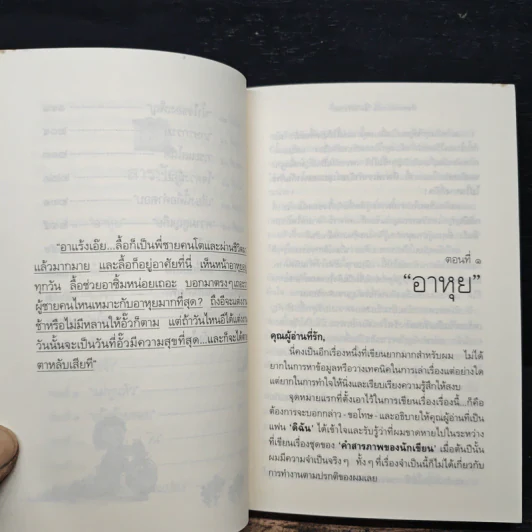 “อาแร้งเอ๊ย...ลื้อก็เป็นพี่ชายคนโตและผ่านชีวิต
แล้วมากมาย และลื้อก็อยู่อาศัยที่นี่ เห็นหน้าอาหุย
ทุกวัน ลื้อช่วยอาซิ้มหน่อยเถอะ บอกมาตรงๆ
ผู้ชายคนไหนเหมาะกับอาหุยมากที่สุด? ถึงอีจะแต่ง
ช้าหรือไม่มีหลานให้อั๊วก็ตาม แต่ถ้าวันไหนอีได้แต่ง
วันนั้นจะเป็นวันที่อั๊วมีความสุขที่สุด...และก็จะได้
ตาหลับเสียที”
ตอนที่ ๑
“อาหุย”
คุณผู้อ่านที่รัก,
นี่คงเป็นอีกเรื่องหนึ่งที่เขียนยากมากสำหรับผม ไม่ได้
ยากในการหาข้อมูลหรือวางเทคนิคในการเล่าเรื่องแต่อย่างใด
แต่ยากในการทำใจให้นิ่งและเรียบเรียงความรู้สึกให้สงบ
จุดหมายแรกที่ตั้งเอาไว้ในการเขียนเรื่องเรื่องนี้...ก็คือ
ต้องการจะบอกกล่าว - ขอโทษ - และอธิบายให้คุณผู้อ่านที่เป็น
แฟน ‘ดิฉัน’ ได้เข้าใจและรับรู้ว่าที่ผมขาดหายไปในระหว่าง
ที่เขียนเรื่องชุดของ ‘คำสารภาพของนักเขียน’ เมื่อต้นปีนั้น
ผมมีความจำเป็นจริงๆ ทั้งๆ ที่เรื่องจำเป็นนี้ก็ไม่ได้เกี่ยวกับ
การทำงานตามปรกติของผมเลย